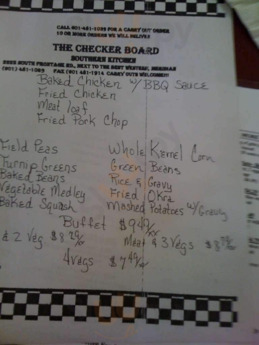 CALL 601-481-1093 FOR A CARRY OUT ORDER
10 OR MORE ORDERS WE WILL DELIVER
THE CHECKER BOARD
SOUTHERN KITCHEN
SOUTH FRONTAGE RD., NEXT TO THE BEST WESTERN, MERIDIAN
(601) 481-1093 FAX (601) 481-1914 CARRY OUTS WELCOMED!!!
Baked Chicken w/ BBQ Sauce
Fried Chicken
Meat loaf
Fried Pork Chop
Field Peas Whole Kernel Corn
Turnip Greens Green Beans
Baked Beans Rice & Gravy
Vegetable Medley Fried Okra
Baked Squash Mashed Potatoes w/ Gravy
Buffet
& 2 Veg Meat & 3 Vegs
4 Vegs